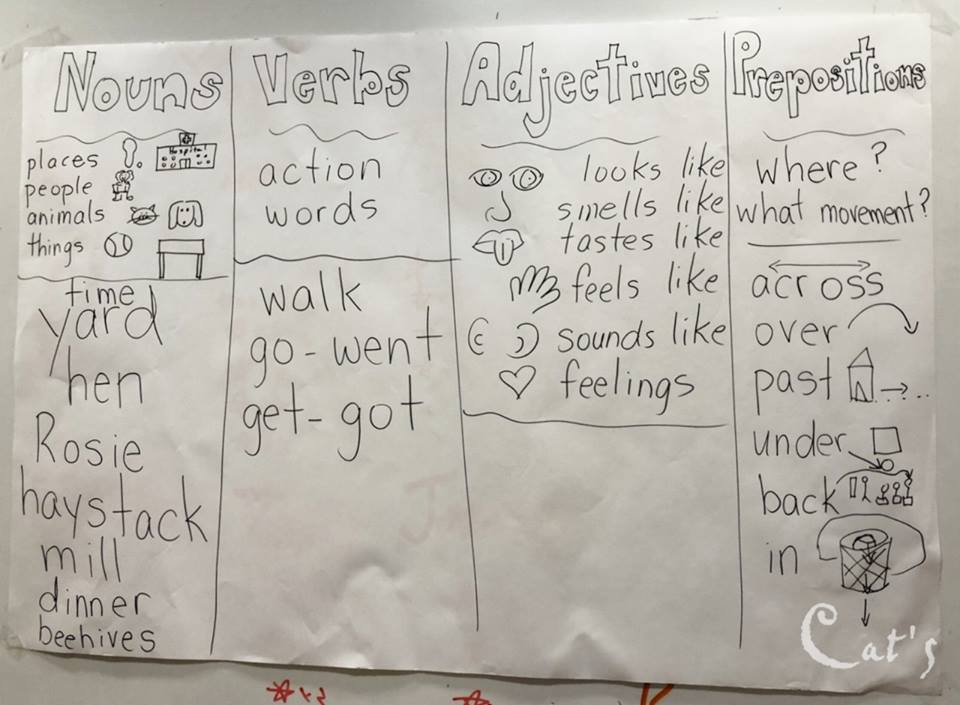 Nouns
places
Hospital
people
animals
things
time
yard
hen
Rosie
haystack
mill
dinner
beehives
Verbs
action
words
walk
go - went
get - got
Adjectives
looks like
smells like
tastes like
feels like
sounds like
feelings
Prepositions
where?
what movement?
across
over
past
under
back
in
Cat's